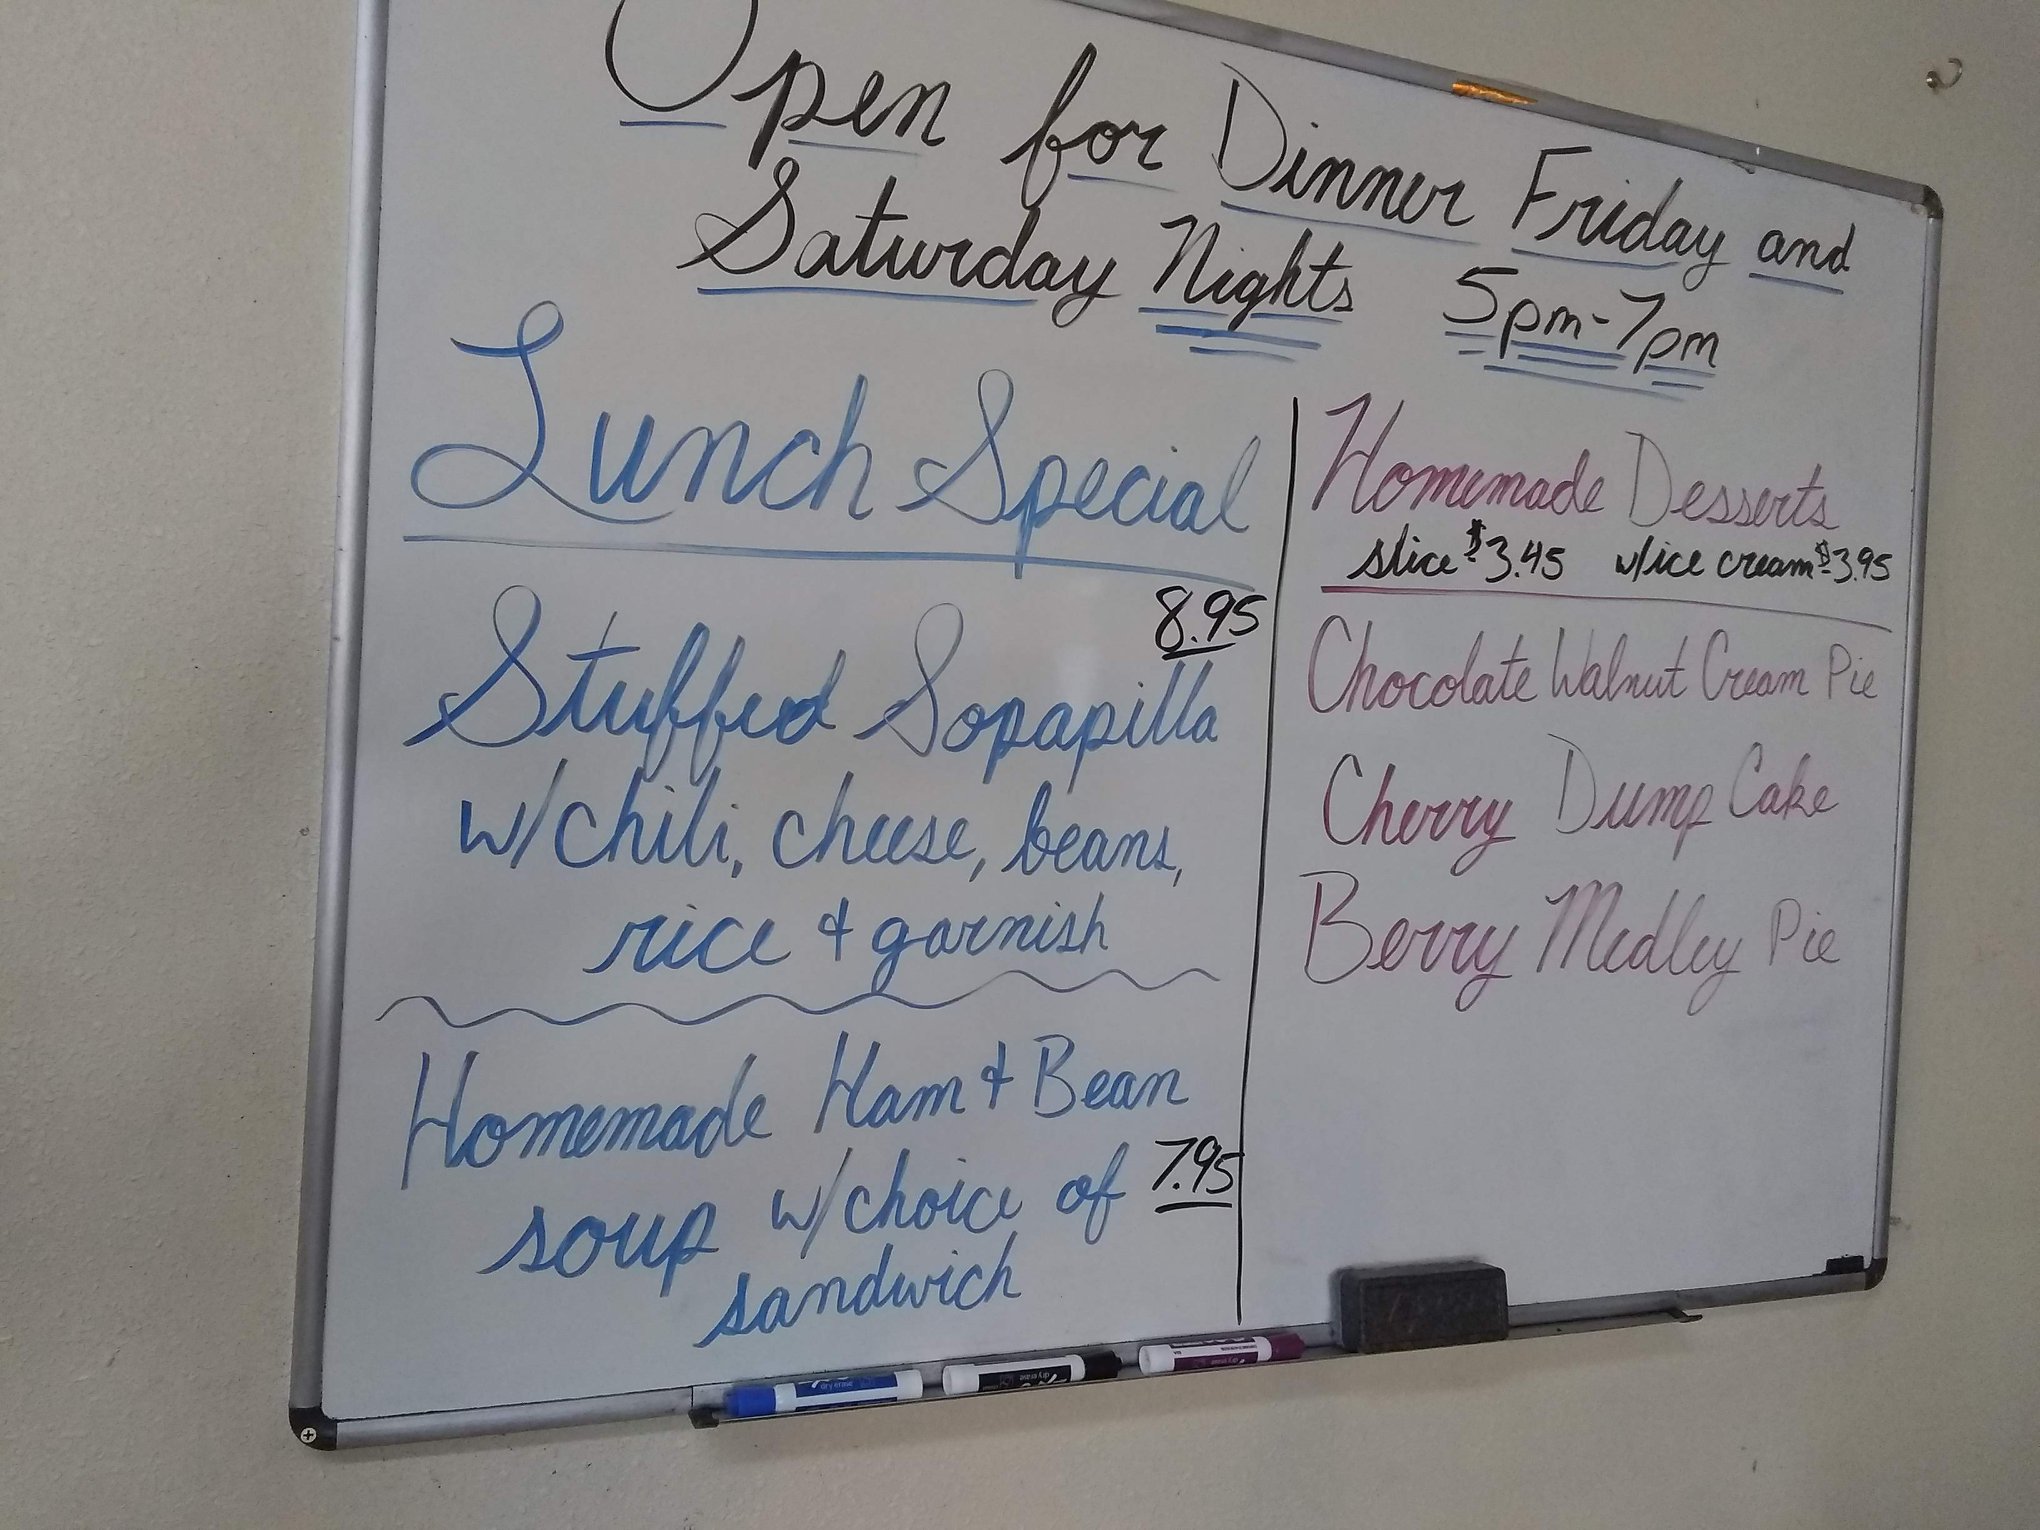 Open for Dinner Friday and
Saturday Nights 5pm-7pm
Lunch Special
8.95
Stuffed Sopapilla
w/chili, cheese, beans,
rice & garnish
Homemade Ham & Bean
soup w/choice of 7.95
sandwich
Homemade Desserts
slice $3.45 w/ice cream $3.95
Chocolate Walnut Cream Pie
Cherry Dump Cake
Berry Medley Pie
dry erase
dry erase
dry erase